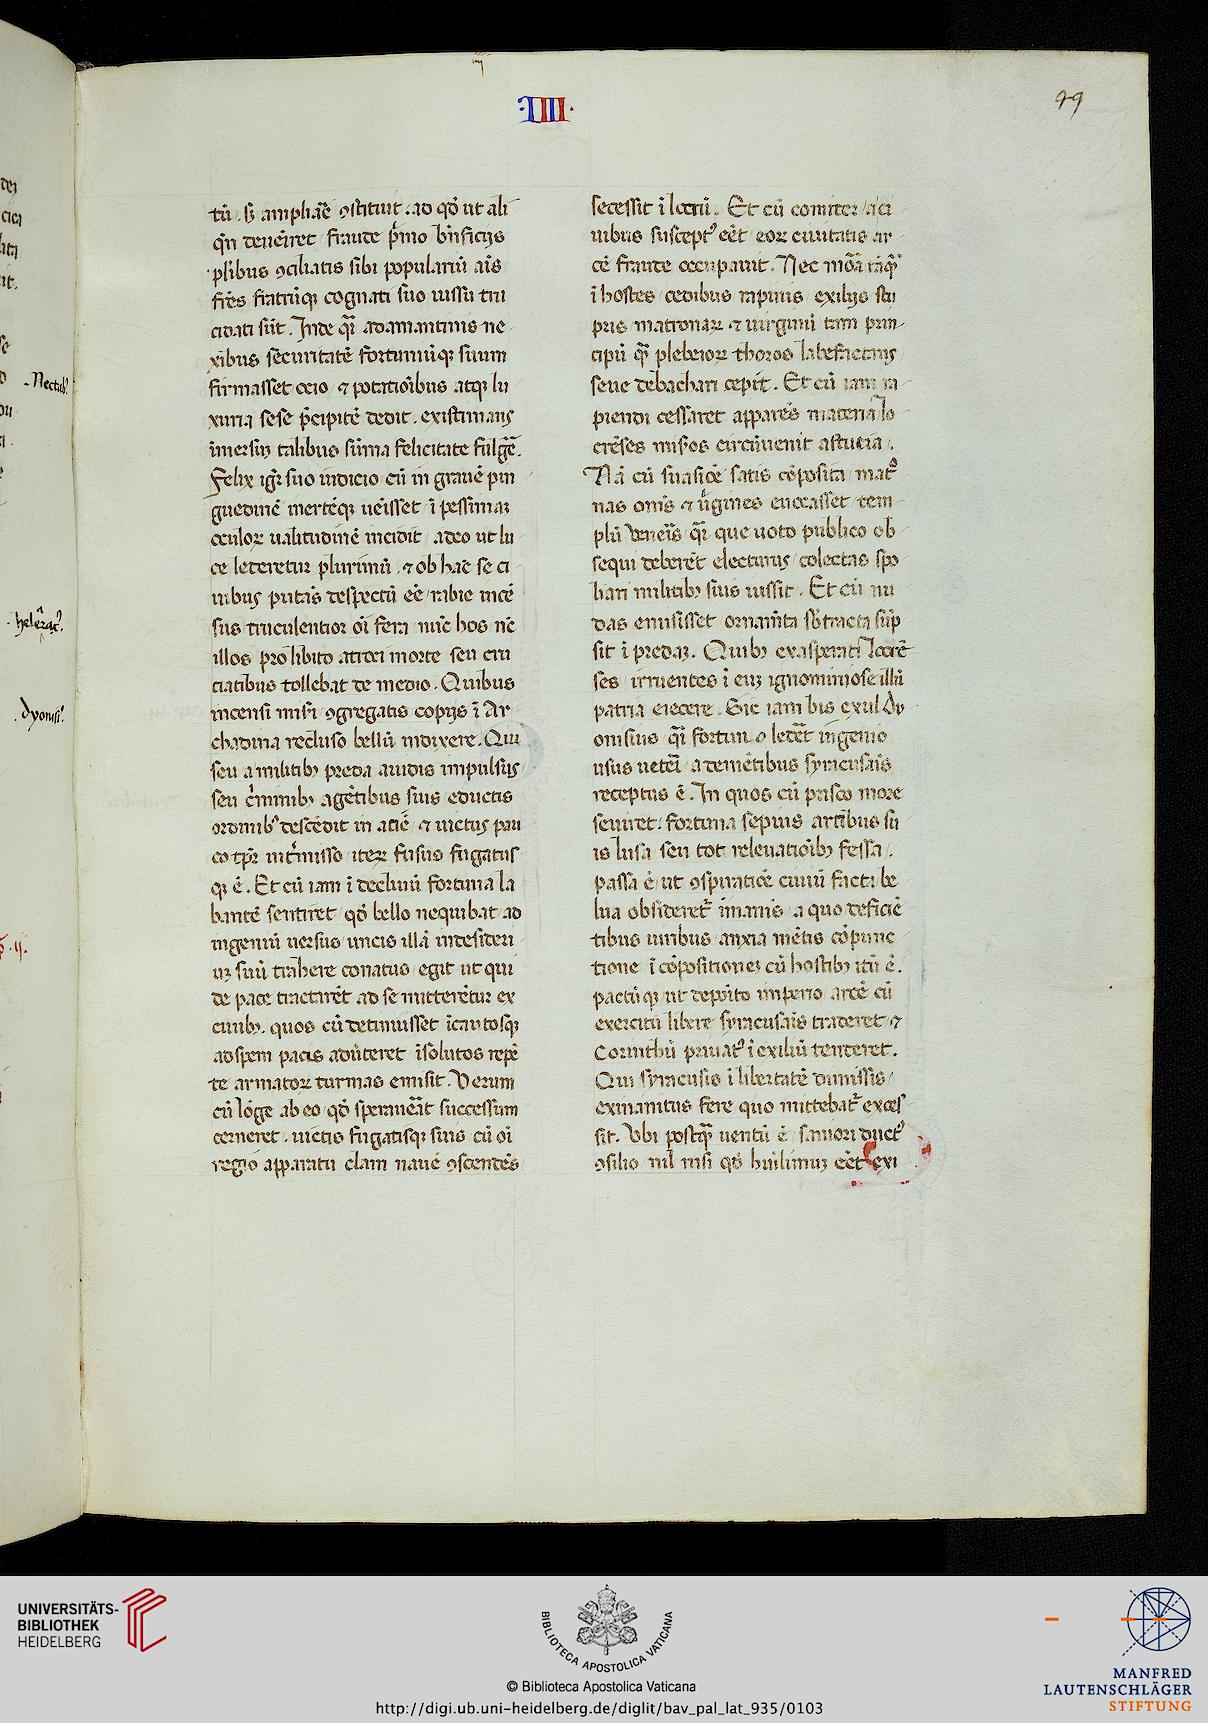 ·IIII·
99
tū. sꝫ ampliāē ꝯstituit. ad qđ ut ali
q̄n deueīret fraude p̄mo bn̄ficijs
plibus ꝯciliatis sibi populariū aīs
fr̄es fratrūqꝫ cognati suo iussu tru
cidati sūt. Inde q̄i adamantinis ne
xibus securitatē fortunāqꝫ suam
firmasset ocio ⁊ potatioībus atqꝫ lu
xuria sese p̄cipitē dedit. existimans
īmersus talibus sūma felicitate fulgē.
Felix igr̄ suo iudicio cū in grauē pin
guedinē inertēqꝫ ueīsset ī pessimaꝫ
oculoꝝ ualitudinē incidit adeo ut lu
ce lederetur plurimū ⁊ ob hāc se ci
uibus putās despectū eē rabie incē
sus truculentior oī fera nūc hos nūc
illos pro libito atroci morte seu cru
ciatibus tollebat de medio. Quibus
incensi misi ꝯgregatis copijs ī Ar
chadina recluso bellū indixere. Qui
seu a militibꝫ preda auidis impulsus
seu c̄minibꝫ agētibus suis eductis
ordinibꝫ descēdit in aciē ⁊ uictus pau
co tp̄r int̄misso iteꝝ fusus fugatus
qꝫ ē. Et cū iam ī decliuū fortuna la
bantē sentiret qđ bello nequibat ad
ingeniū uersus uncis illā in desideri
uꝫ suū trahere conatus egit ut qui
de pace tractarēt ad se mitterētur ex
ciuibꝫ. quos cū detinuisset īcautosqꝫ
ad spem pacis adūteret īsolutos repē
te armatoꝝ turmas emisit. Verum
cū lōge ab eo qđ sperauēat successum
cerneret. uictis fugatisqꝫ suis cū oī
regio apparatu clam nauē ꝯscendēs
secessit ī locrū. Et cū comiter a ci
uibus susceptꝰ eēt eoꝝ ciuitatis ar
cē fraude occupauit. Nec mōa tāq̄
ī hostes cedibus rapinis exilijs stu
pris matronaꝝ ⁊ uirginū tam prin
cipū q̄ꝫ plebeioꝝ thoros labefactans
seue debachari cepit. Et cū iam ra
piendi cessaret apparēs materia lo
crēses mis̄os circūuenit astutia.
Nā cū suasiōe satis cōposita matꝰ
nas om̄s ⁊ ūgines euocasset tem
plū ueneīs q̄i que uoto publico ob
sequi deberēt electurus colectas spo
liari militibꝫ suis iussit. Et cū nu
das emisisset ornam̄ta sb̄tracta sūp
sit ī predaꝫ. Quibꝫ exasperati Locrē
ses irruentes ī euꝫ ignominiose illū
patria eiecere. Sic iam bis exul Dy
onisius q̄i fortun o ledēt ingenio
usus uetēi a demētibus syracusais
receptus ē. In quos cū prisco more
seuiret. fortuna sepius artibus su
is lusa seu tot releuatioībꝫ fessa.
passa ē ut ꝯspiratiōe ciuiū facta be
lua obsideret̄ īmanis a quo deficiē
tibus uiribus anxia mētis cōpunc
tione ī cōpositioneꝫ cū hostibꝫ itū ē.
pactūqꝫ ut deposito imperio arcē cū
exercitu libere syracusais traderet ⁊
Corinthū priuatꝰ ī exiliū tenderet.
Qui syracusis ī libertatē dimissis
exinanitus fere quo mittebat̄ exces
sit. Vbi postq̄ꝫ uentū ē saniori ductꝰ
ꝯsilio nil nisi qđ humilimuꝫ eēt exi
Nectabꝰ
dyonisiꝰ
UNIVERSITÄTS-
BIBLIOTHEK
HEIDELBERG
BIBLIOTECA APOSTOLICA VATICANA
© Biblioteca Apostolica Vaticana
http://digi.ub.uni-heidelberg.de/diglit/bav_pal_lat_935/0103
MANFRED
LAUTENSCHLÄGER
STIFTUNG